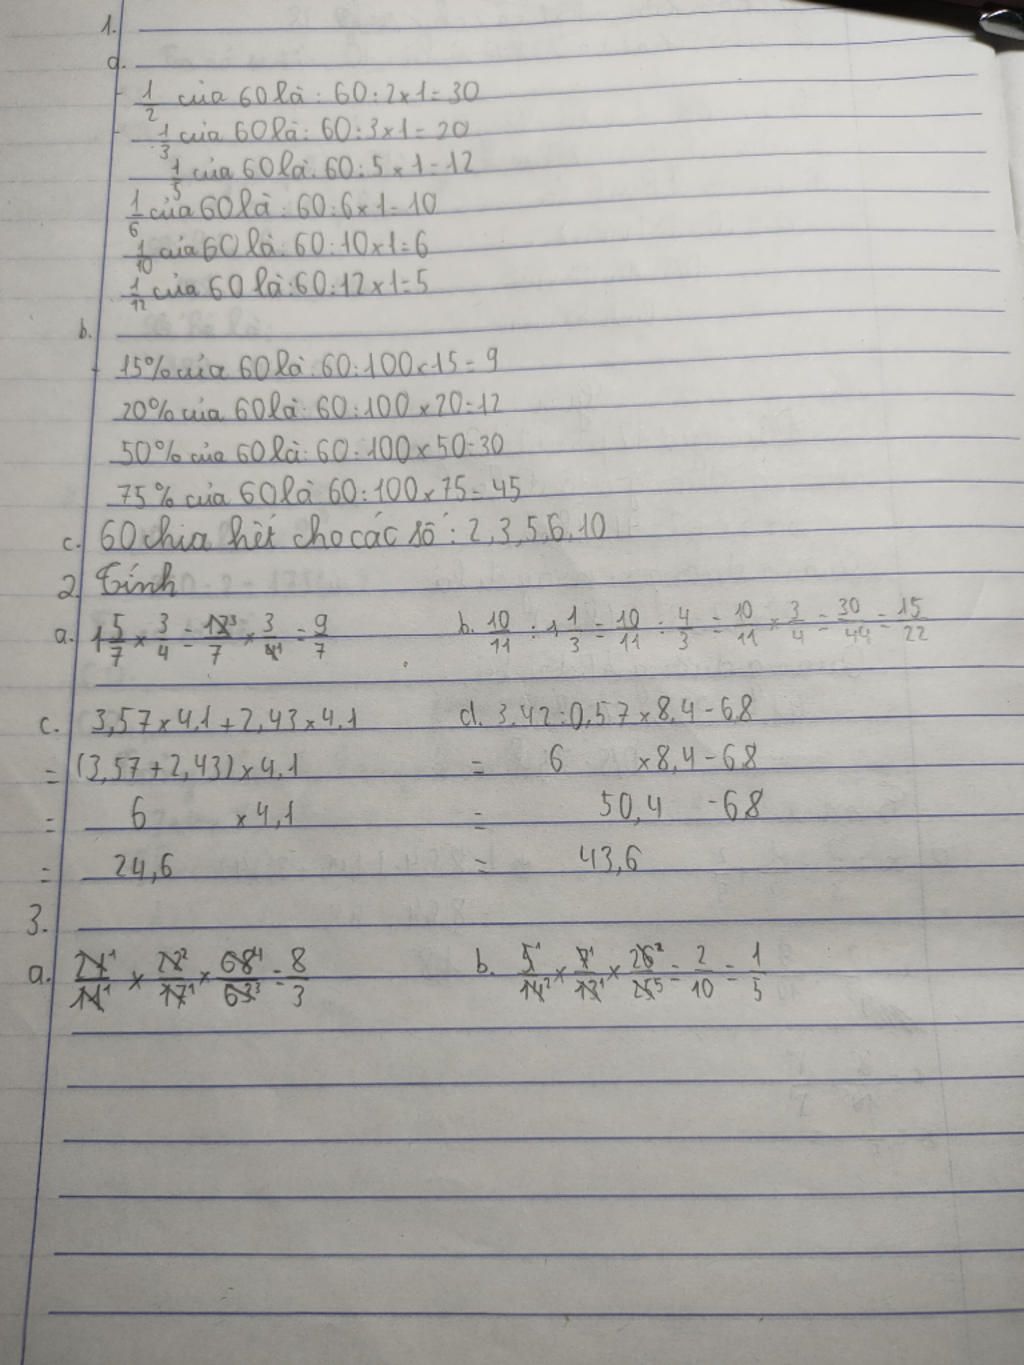 1.
a.
1/2 của 60 là : 60 : 2 x 1 = 30
1/3 của 60 là : 60 : 3 x 1 = 20
1/5 của 60 là : 60 : 5 x 1 = 12
1/6 của 60 là : 60 : 6 x 1 = 10
1/10 của 60 là : 60 : 10 x 1 = 6
1/12 của 60 là : 60 : 12 x 1 = 5
b.
15% của 60 là : 60 : 100 x 15 = 9
20% của 60 là : 60 : 100 x 20 = 12
50% của 60 là : 60 : 100 x 50 = 30
75% của 60 là 60 : 100 x 75 = 45
c. 60 chia hết cho các số : 2, 3, 5, 6, 10
2. Tính
a. 1 5/7 x 3/4 = 12³/7 x 3/4¹ = 9/7 b. 10/11 : 1 1/3 = 10/11 : 4/3 = 10/11 x 3/4 = 30/44 = 15/22
c. 3,57 x 4,1 + 2,43 x 4,1 d. 3,42 : 0,57 x 8,4 - 6,8
= (3,57 + 2,43) x 4,1 = 6 x 8,4 - 6,8
= 6 x 4,1 = 50,4 - 6,8
= 24,6 = 43,6
3.
a. 21¹/11¹ x 22²/17¹ x 68⁴/63³ = 8/3 b. 5¹/14² x 7¹/13¹ x 26²/25⁵ = 2/10 = 1/5